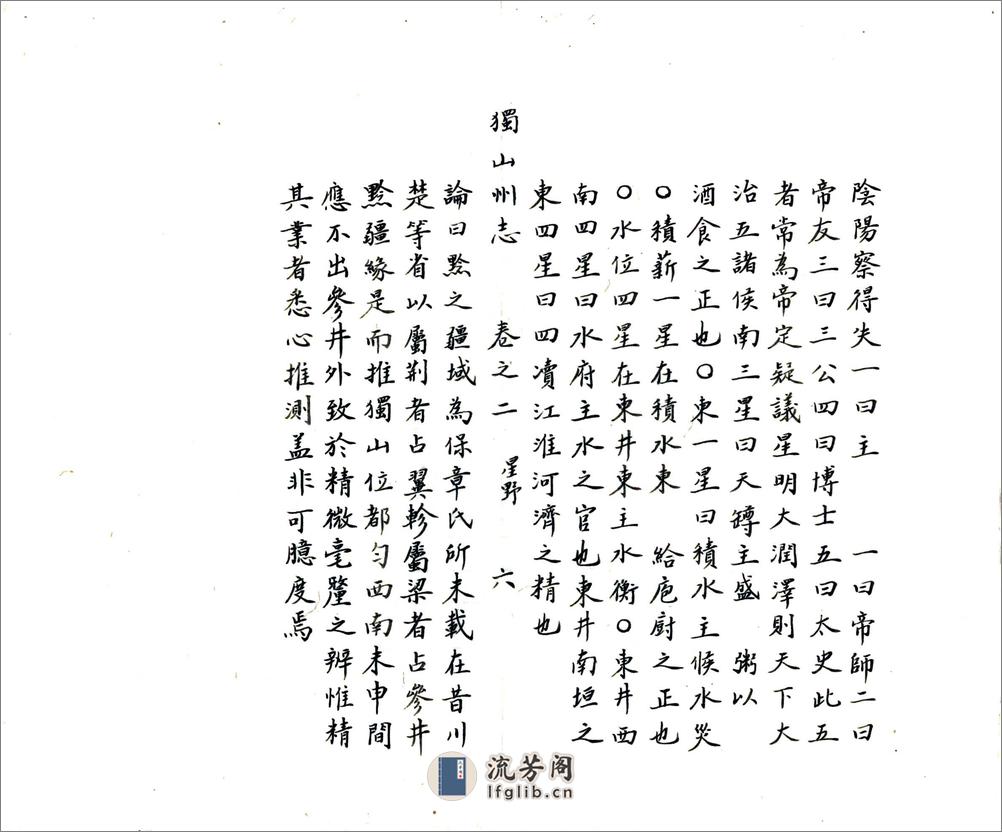 陰陽察得失一曰主　　一曰帝師二曰
帝友三曰三公四曰博士五曰太史此五
者常為帝定疑議星明大潤澤則天下大
治五諸侯南三星曰天罇主盛　粥以
酒食之正也○東一星曰積水主候水災
○積薪一星在積水東　給庖廚之正也
○水位四星在東井東主水衡○東井西
南四星曰水府主水之官也東井南垣之
東四星曰四瀆江淮河濟之精也
獨山州志　卷之二　星野　六
論曰黔之疆域為保章氏所未載在昔川
楚等省以屬荆者占翼軫屬梁者占參井
黔疆緣是而推獨山位都勻西南未申間
應不出參井外致於精微毫釐之辨惟精
其業者悉心推測盖非可臆度焉
流芳阁
lfglib.cn